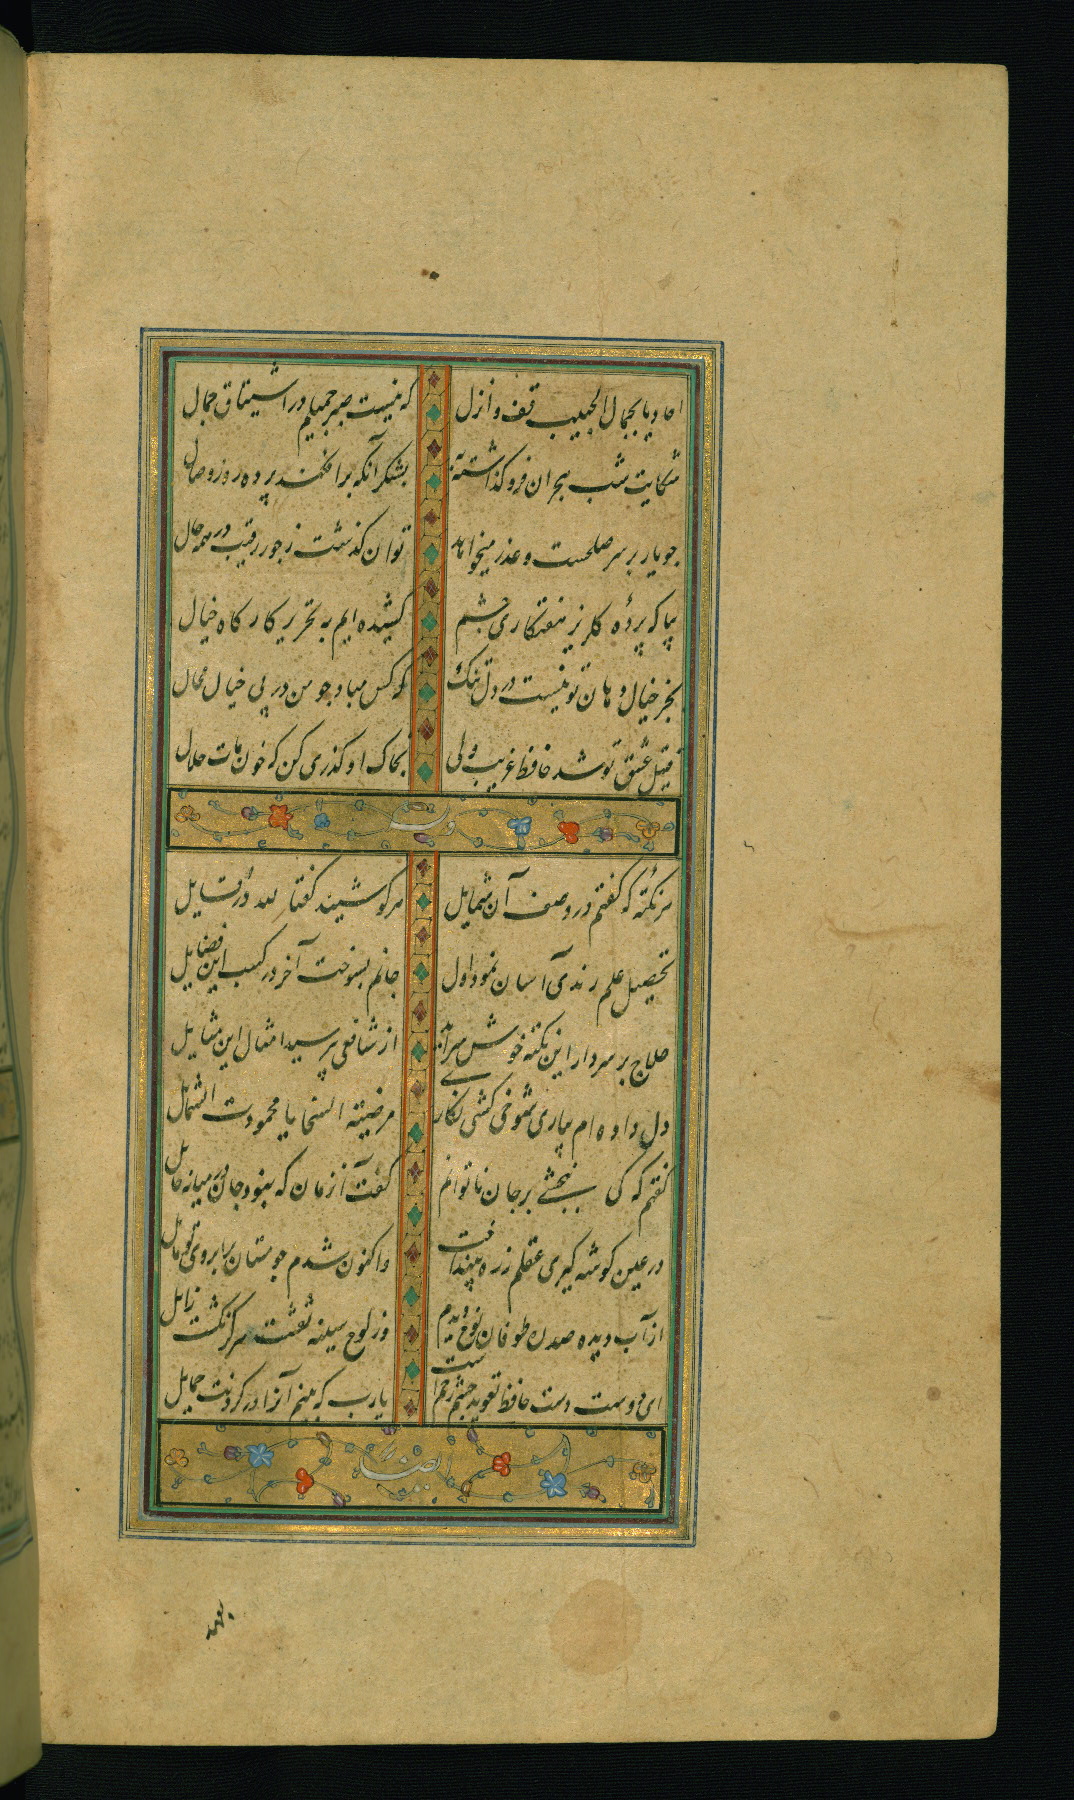 احادیا بجمال الحبیب قف وانزل که نیست صبر جمیلم در اشتیاق جمال
شکایت شب هجران فرو گذاشته به بشکر آنکه برافکند پرده روز وصال
چو یار بر سر صلحست و عذر میخواهد توان کذشت ز جور رقیب در همه حال
بیا که پردهٔ کلریز هفتکاری چشم کشیده ایم به تحریر کارکاه خیال
بجز خیال دهان تو نیست در دل تنک که کس مباد چو من در پی خیال محال
قتیل عشق تو شد حافظ غریب ولی بخاک او کذری کن که خون مات حلال
وله
هر نکته که کفتم در وصف آن شمایل هر کو شنید کفتا لله در قایل
تحصیل علم رندی آسان نمود اول جانم بسوخت آخر در کسب این فضایل
حلاج بر سر دار این نکته خوش سراید از شافعی پرسید امثال این مسایل
دل داده ام بیاری شوخی کشی نکاری مرضیته السخایا محمودت الشمایل
کفتم که کی ببخشی بر جان ناتوانم کفت آن زمان که نبود جان در میانه حایل
در عین کوشه کیری عقلم ز ره بینداخت واکنون شدم چو مستان بر ابروی تو مایل
از آب دیده صد ره طوفان نوح دیدم وز لوح سینه نقشت هرکز نکشت زایل
ای دوست دست حافظ تعوید چشم زخم است یارب که بینم آنرا در کردنت حمایل
ایضا
بعهد